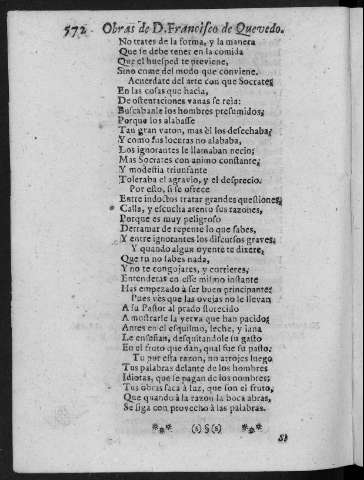 572 Obras de D. Francisco de Quevedo.
No trates de la forma, y la manera
Que se debe tener en la comida
Que el huesped te previene,
Sino come del modo que conviene.
Acuerdate del arte con que Socrates
En las cosas que hacia,
De ostentaciones vanas se reia:
Buscabanle los hombres presumidos;
Porque los alabasse
Tan gran varon, mas èl los desechaba;
Y como sus locuras no alababa,
Los ignorantes le llamaban necio;
Mas Socrates con animo constante,
Y modestia triunfante
Toleraba el agravio, y el desprecio.
Por esto, si se ofrece
Entre indoctos tratar grandes questiones,
Calla, y escucha atento sus razones,
Porque es muy peligroso
Derramar de repente lo que sabes,
Y entre ignorantes los discursos graves;
Y quando algun oyente te dixere,
Que tu no sabes nada,
Y no te congojares, y corrieres,
Entenderas en esse mismo instante
Has empezado à ser buen principante;
Pues vès que las ovejas no le llevan
A su Pastor al prado florecido
A mostrarle la yerva que han pacido;
Antes en el esquilmo, leche, y lana
Le enseñan, desquitandole su gasto
En el fruto que dan, qual fue su pasto.
Tu por esta razon, no arrojes luego
Tus palabras delante de los hombres
Idiotas, que se pagan de los nombres;
Tus obras saca à luz, que son el fruto,
Que quando à la razon la boca abras,
Se siga con provecho à las palabras.
*** (§)§(§) ***
Si